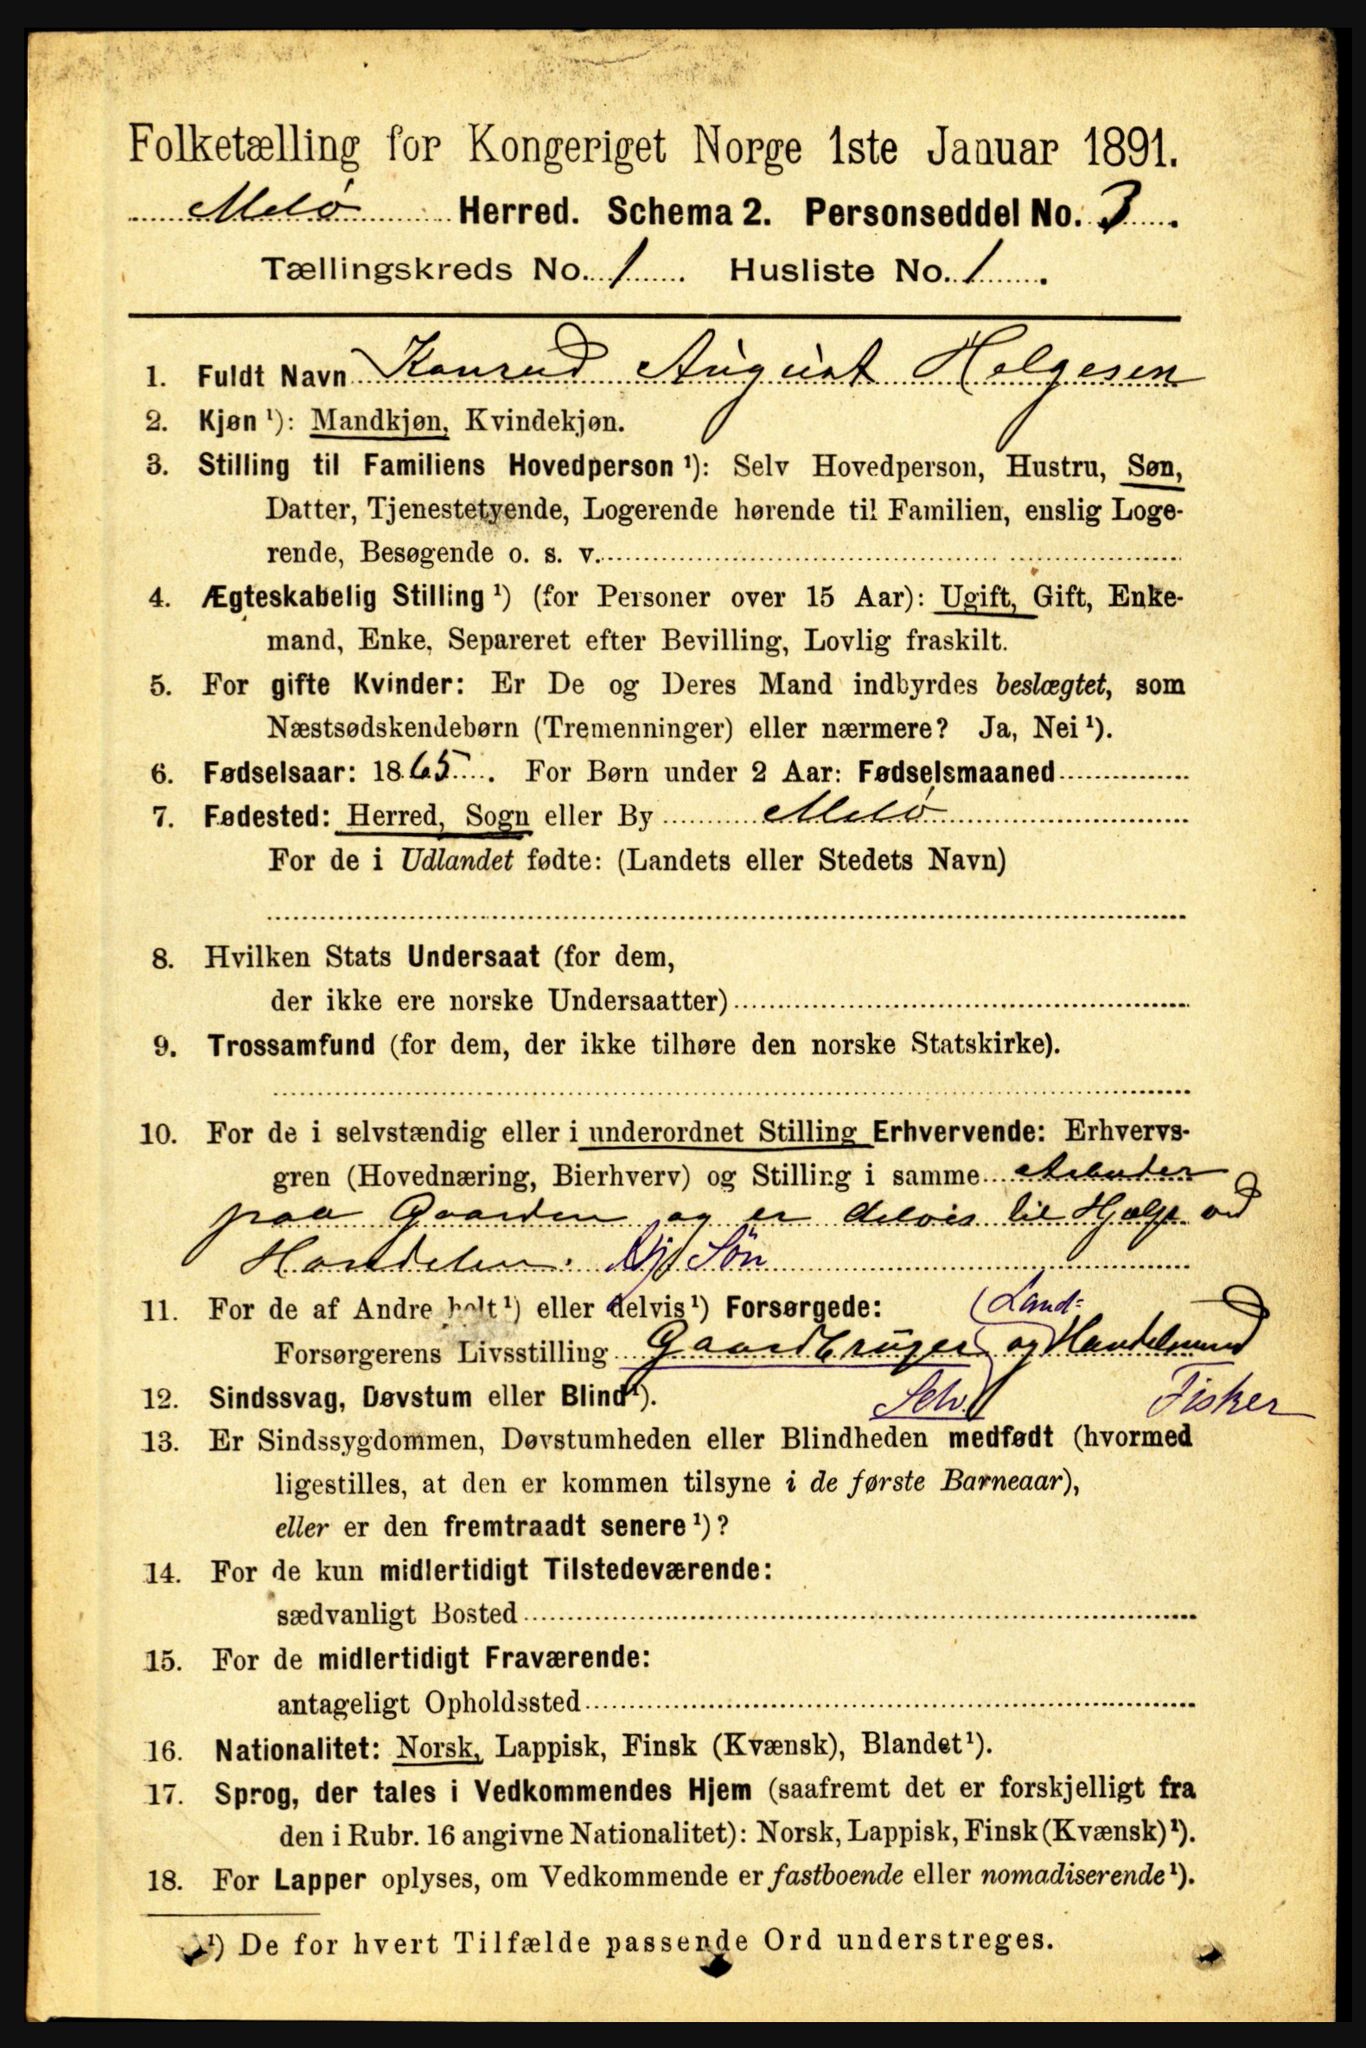 Folketælling for Kongeriget Norge 1ste Januar 1891.
Melö Herred. Schema 2. Personseddel No. 3.
Tællingskreds No. 1. Husliste No. 1.
1. Fuldt Navn Konrad August Helgesen
2. Kjøn ¹): Mandkjøn, Kvindekjøn.
3. Stilling til Familiens Hovedperson ¹): Selv Hovedperson, Hustru, Søn,
Datter, Tjenestetyende, Logerende hørende til Familien, enslig Loge-
rende, Besøgende o. s. v.
4. Ægteskabelig Stilling ¹) (for Personer over 15 Aar): Ugift, Gift, Enke-
mand, Enke, Separeret efter Bevilling, Lovlig fraskilt.
5. For gifte Kvinder: Er De og Deres Mand indbyrdes beslægtet, som
Næstsødskendebørn (Tremenninger) eller nærmere? Ja, Nei ¹).
6. Fødselsaar: 1865. For Børn under 2 Aar: Fødselsmaaned
7. Fødested: Herred, Sogn eller By Melö
For de i Udlandet fødte: (Landets eller Stedets Navn)
8. Hvilken Stats Undersaat (for dem,
der ikke ere norske Undersaatter)
9. Trossamfund (for dem, der ikke tilhøre den norske Statskirke).
10. For de i selvstændig eller i underordnet Stilling Erhvervende: Erhvervs-
gren (Hovednæring, Bierhverv) og Stilling i samme Arbeider
paa Gaarden og er delvis til Hjælp ved
Handelen. Søn
11. For de af Andre helt ¹) eller delvis ¹) Forsørgede:
Land-
Forsørgerens Livsstilling Gaardbruger og Handelsmand
12. Sindssvag, Døvstum eller Blind ¹). Selv. Fisker
13. Er Sindssygdommen, Døvstumheden eller Blindheden medfødt (hvormed
ligestilles, at den er kommen tilsyne i de første Barneaar),
eller er den fremtraadt senere ¹)?
14. For de kun midlertidigt Tilstedeværende:
sædvanligt Bosted
15. For de midlertidigt Fraværende:
antageligt Opholdssted
16. Nationalitet: Norsk, Lappisk, Finsk (Kvænsk), Blandet ¹).
17. Sprog, der tales i Vedkommendes Hjem (saafremt det er forskjelligt fra
den i Rubr. 16 angivne Nationalitet): Norsk, Lappisk, Finsk (Kvænsk) ¹).
18. For Lapper oplyses, om Vedkommende er fastboende eller nomadiserende ¹).
¹) De for hvert Tilfælde passende Ord understreges.